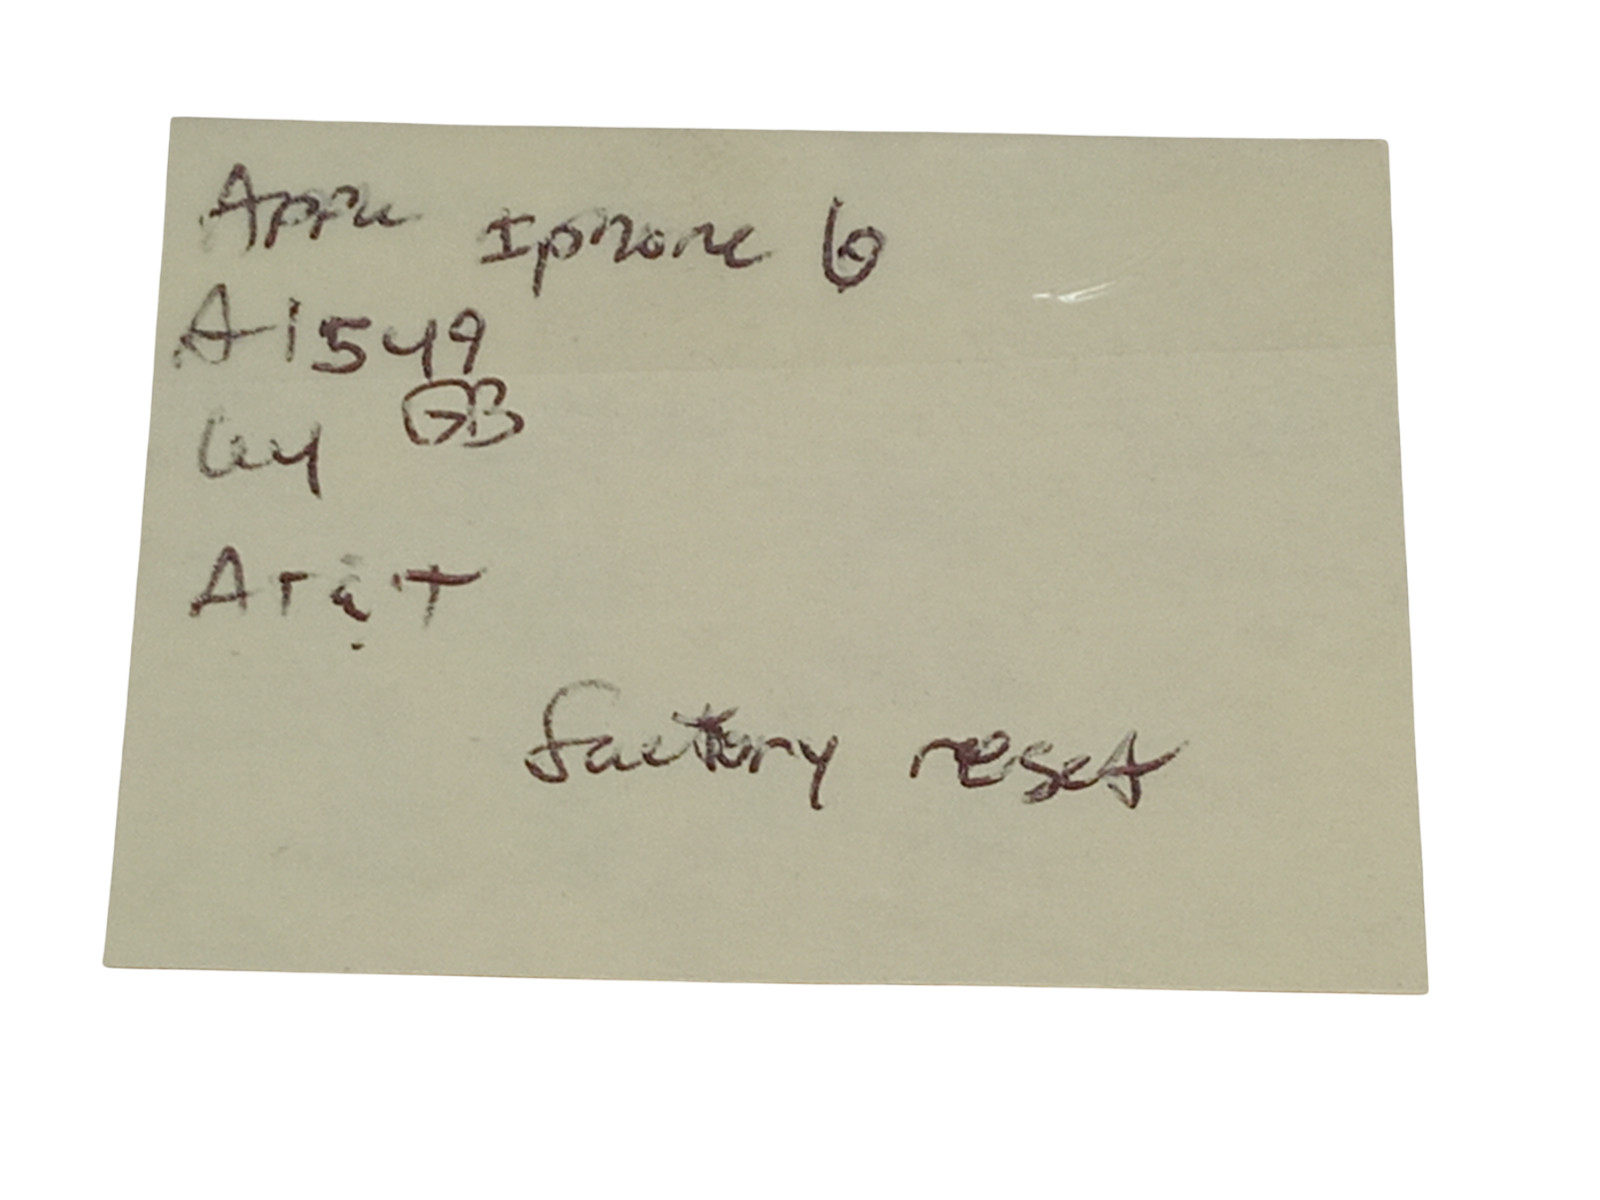 Apple Iphone 6
A1549
64 GB
AT&T
factory reset